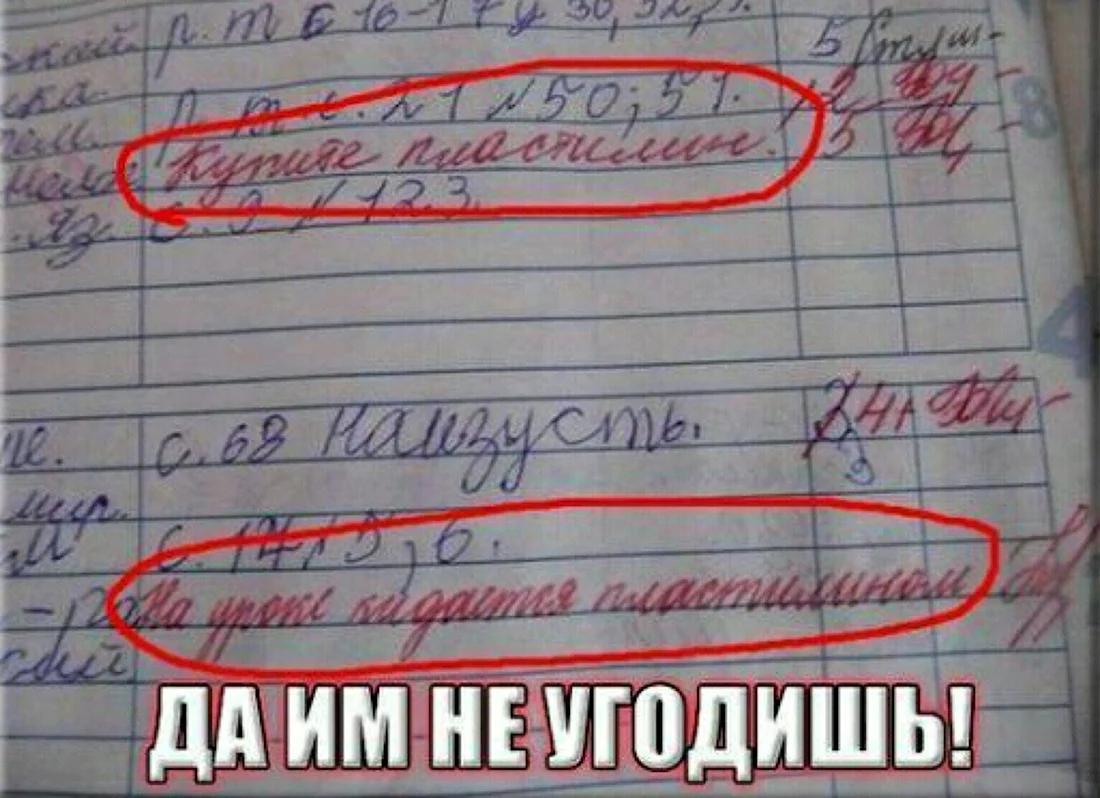 р. т с 16-17 у 30, 32,
5
р. т с. 21 № 50; 51. 2
Купите пластилин. 5
. Яз. с. 9 № 123.
с. 68 наизусть. 4
3
мир.
с. 14 № 5, 6.
На уроке кидается пластилином
ДА ИМ НЕ УГОДИШЬ!